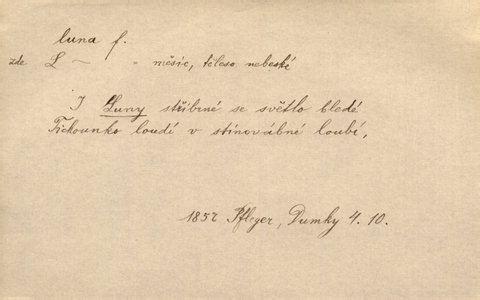 luna f.
zde L — = měsíc, těleso nebeské
I Luny stříbrné se světlo bledé
Tichounko loudí v stinovábné loubí,
1857 Pfleger, Dumky 4. 10.